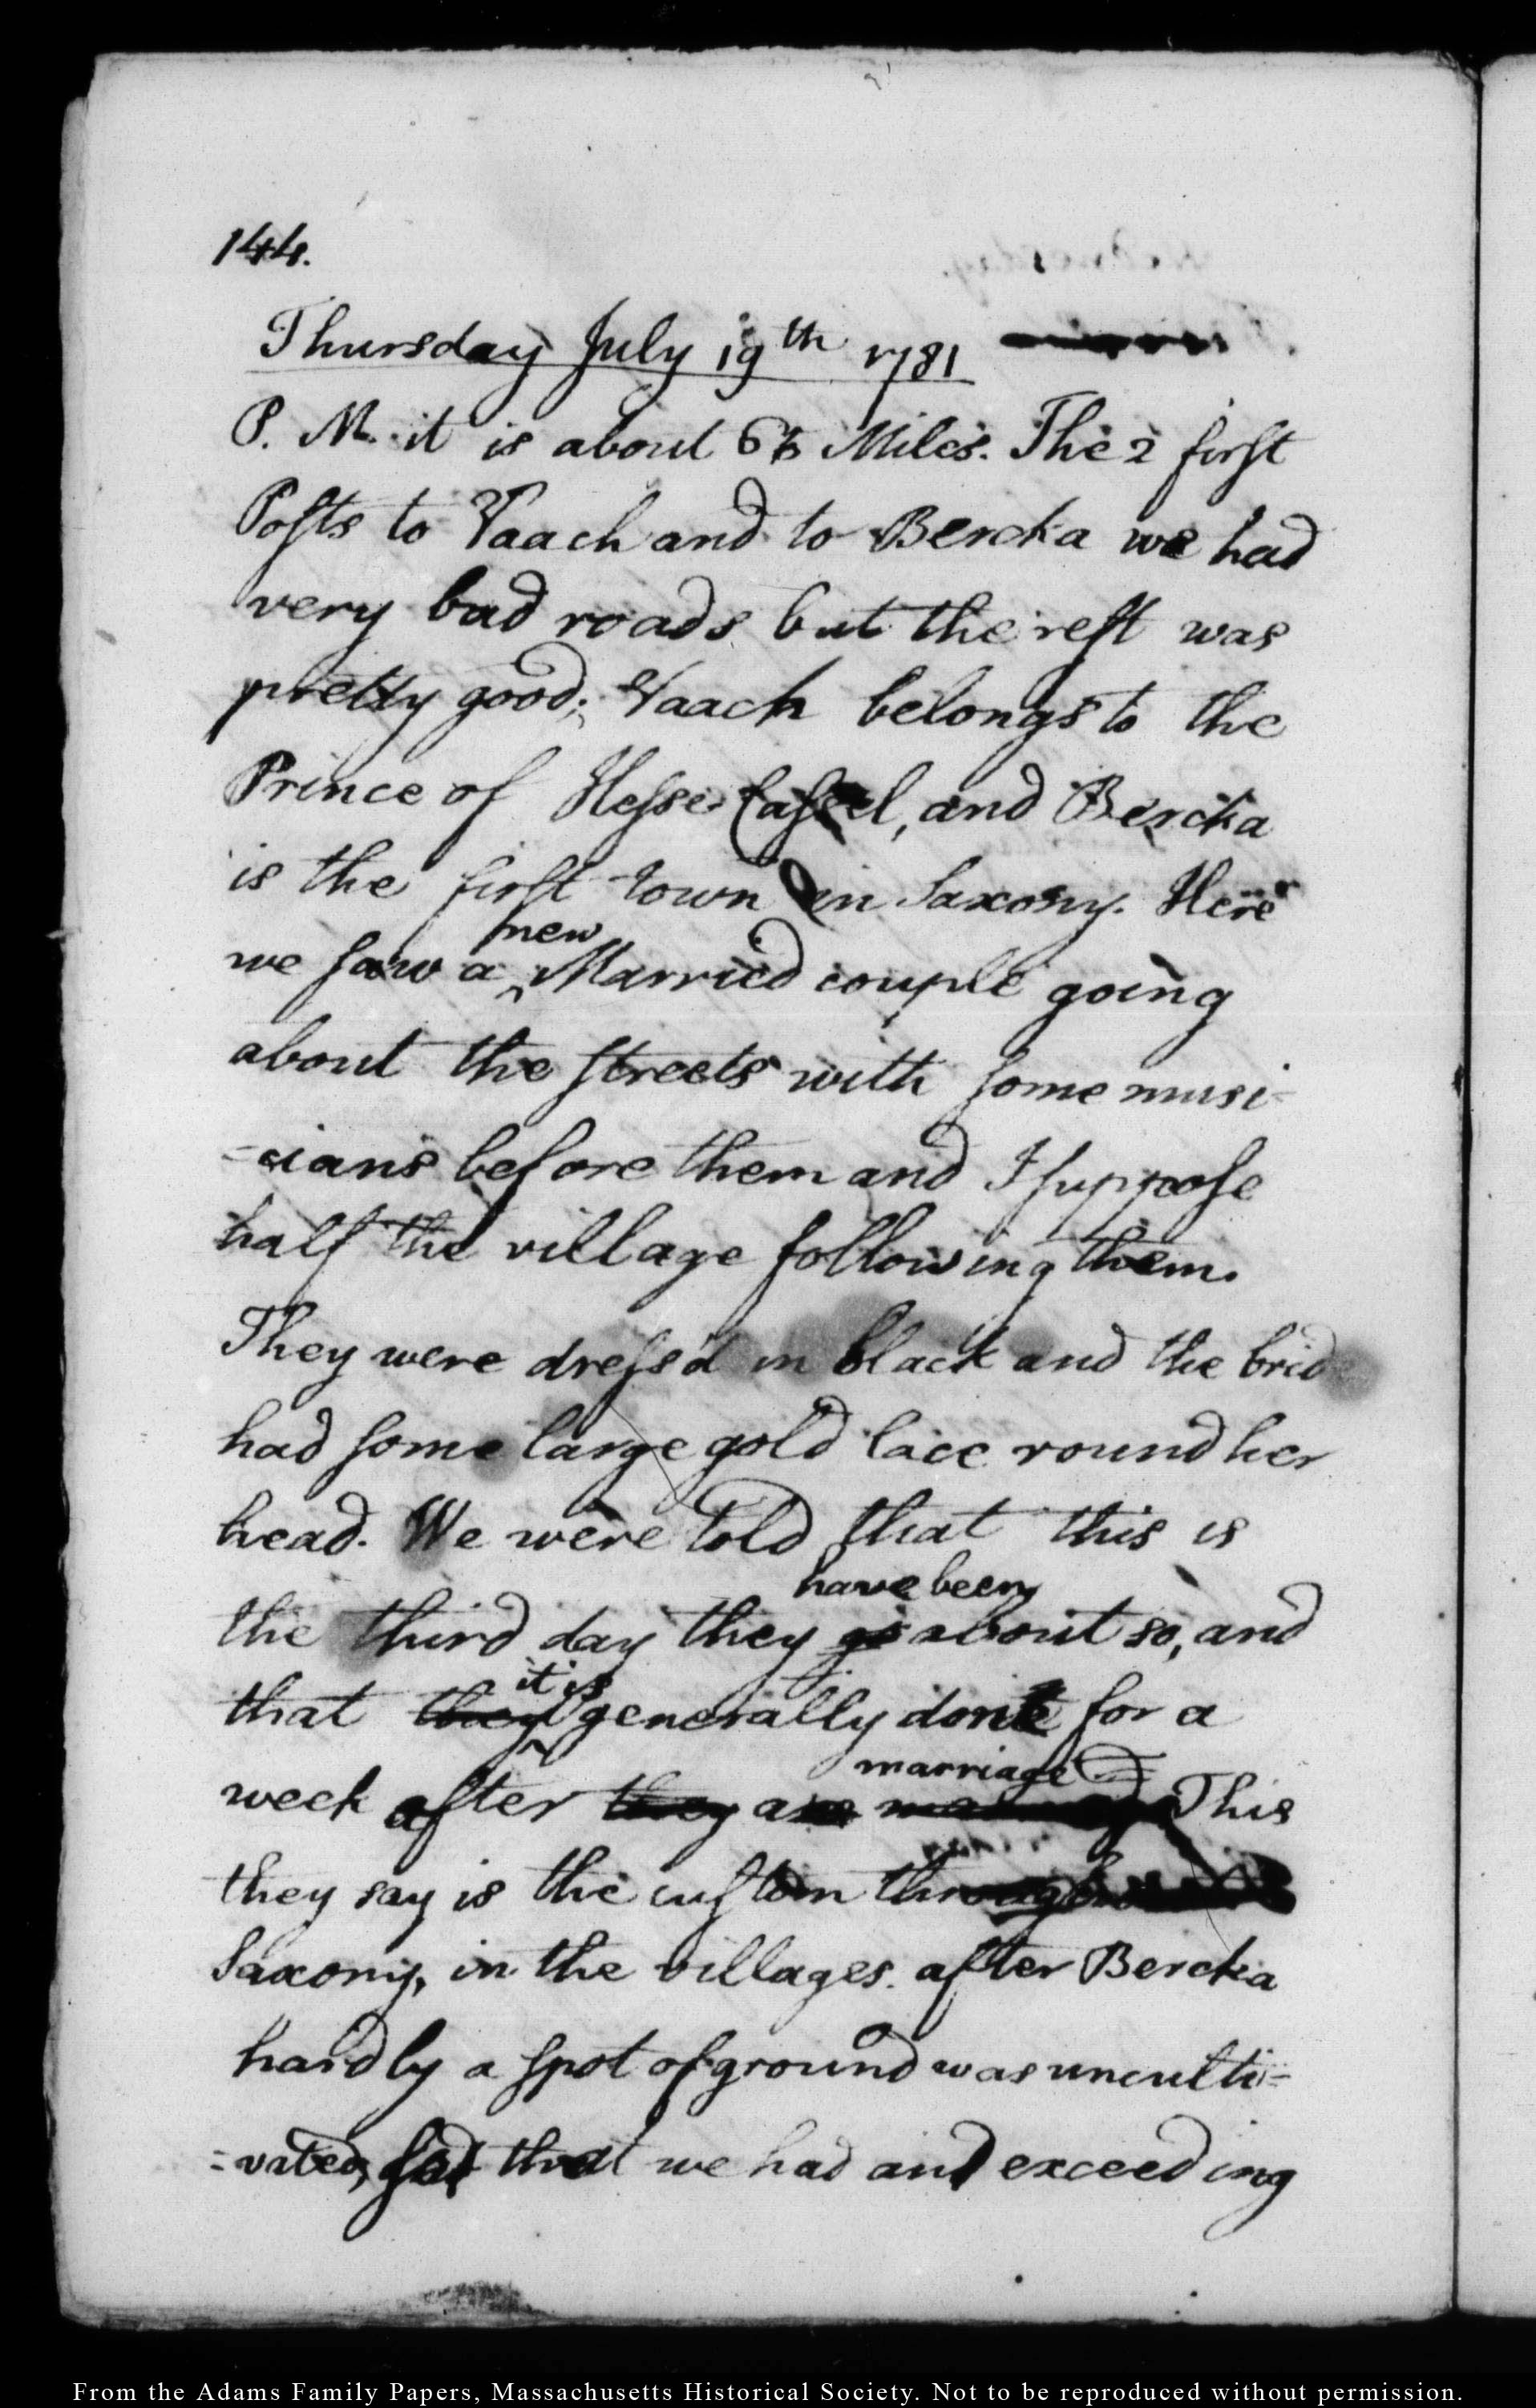 144.
Thursday July 19th 1781
P. M. it is about Miles. The 2 first
Posts to Vaach and to Bercka we had
very bad roads but the rest was
pretty good; Vaach belongs to the
Prince of Hesse-Cassel, and Bercka
is the first town in Saxony. Here
new
we saw a ^ Married couple going
about the streets with some musi-
-cians before them and I suppose
half the village following them.
They were dress'd in black and the bride
had some large gold lace round her
head. We were told that this is
have been
the third day they go about so, and
it is
that they ^ generally done for a
marriage
week after they are This
they say is the custom through
Saxony, in the villages. after Bercka
hardly a spot of ground was unculti-
-vated, that we had and exceeding
From the Adams Family Papers, Massachusetts Historical Society. Not to be reproduced without permission.